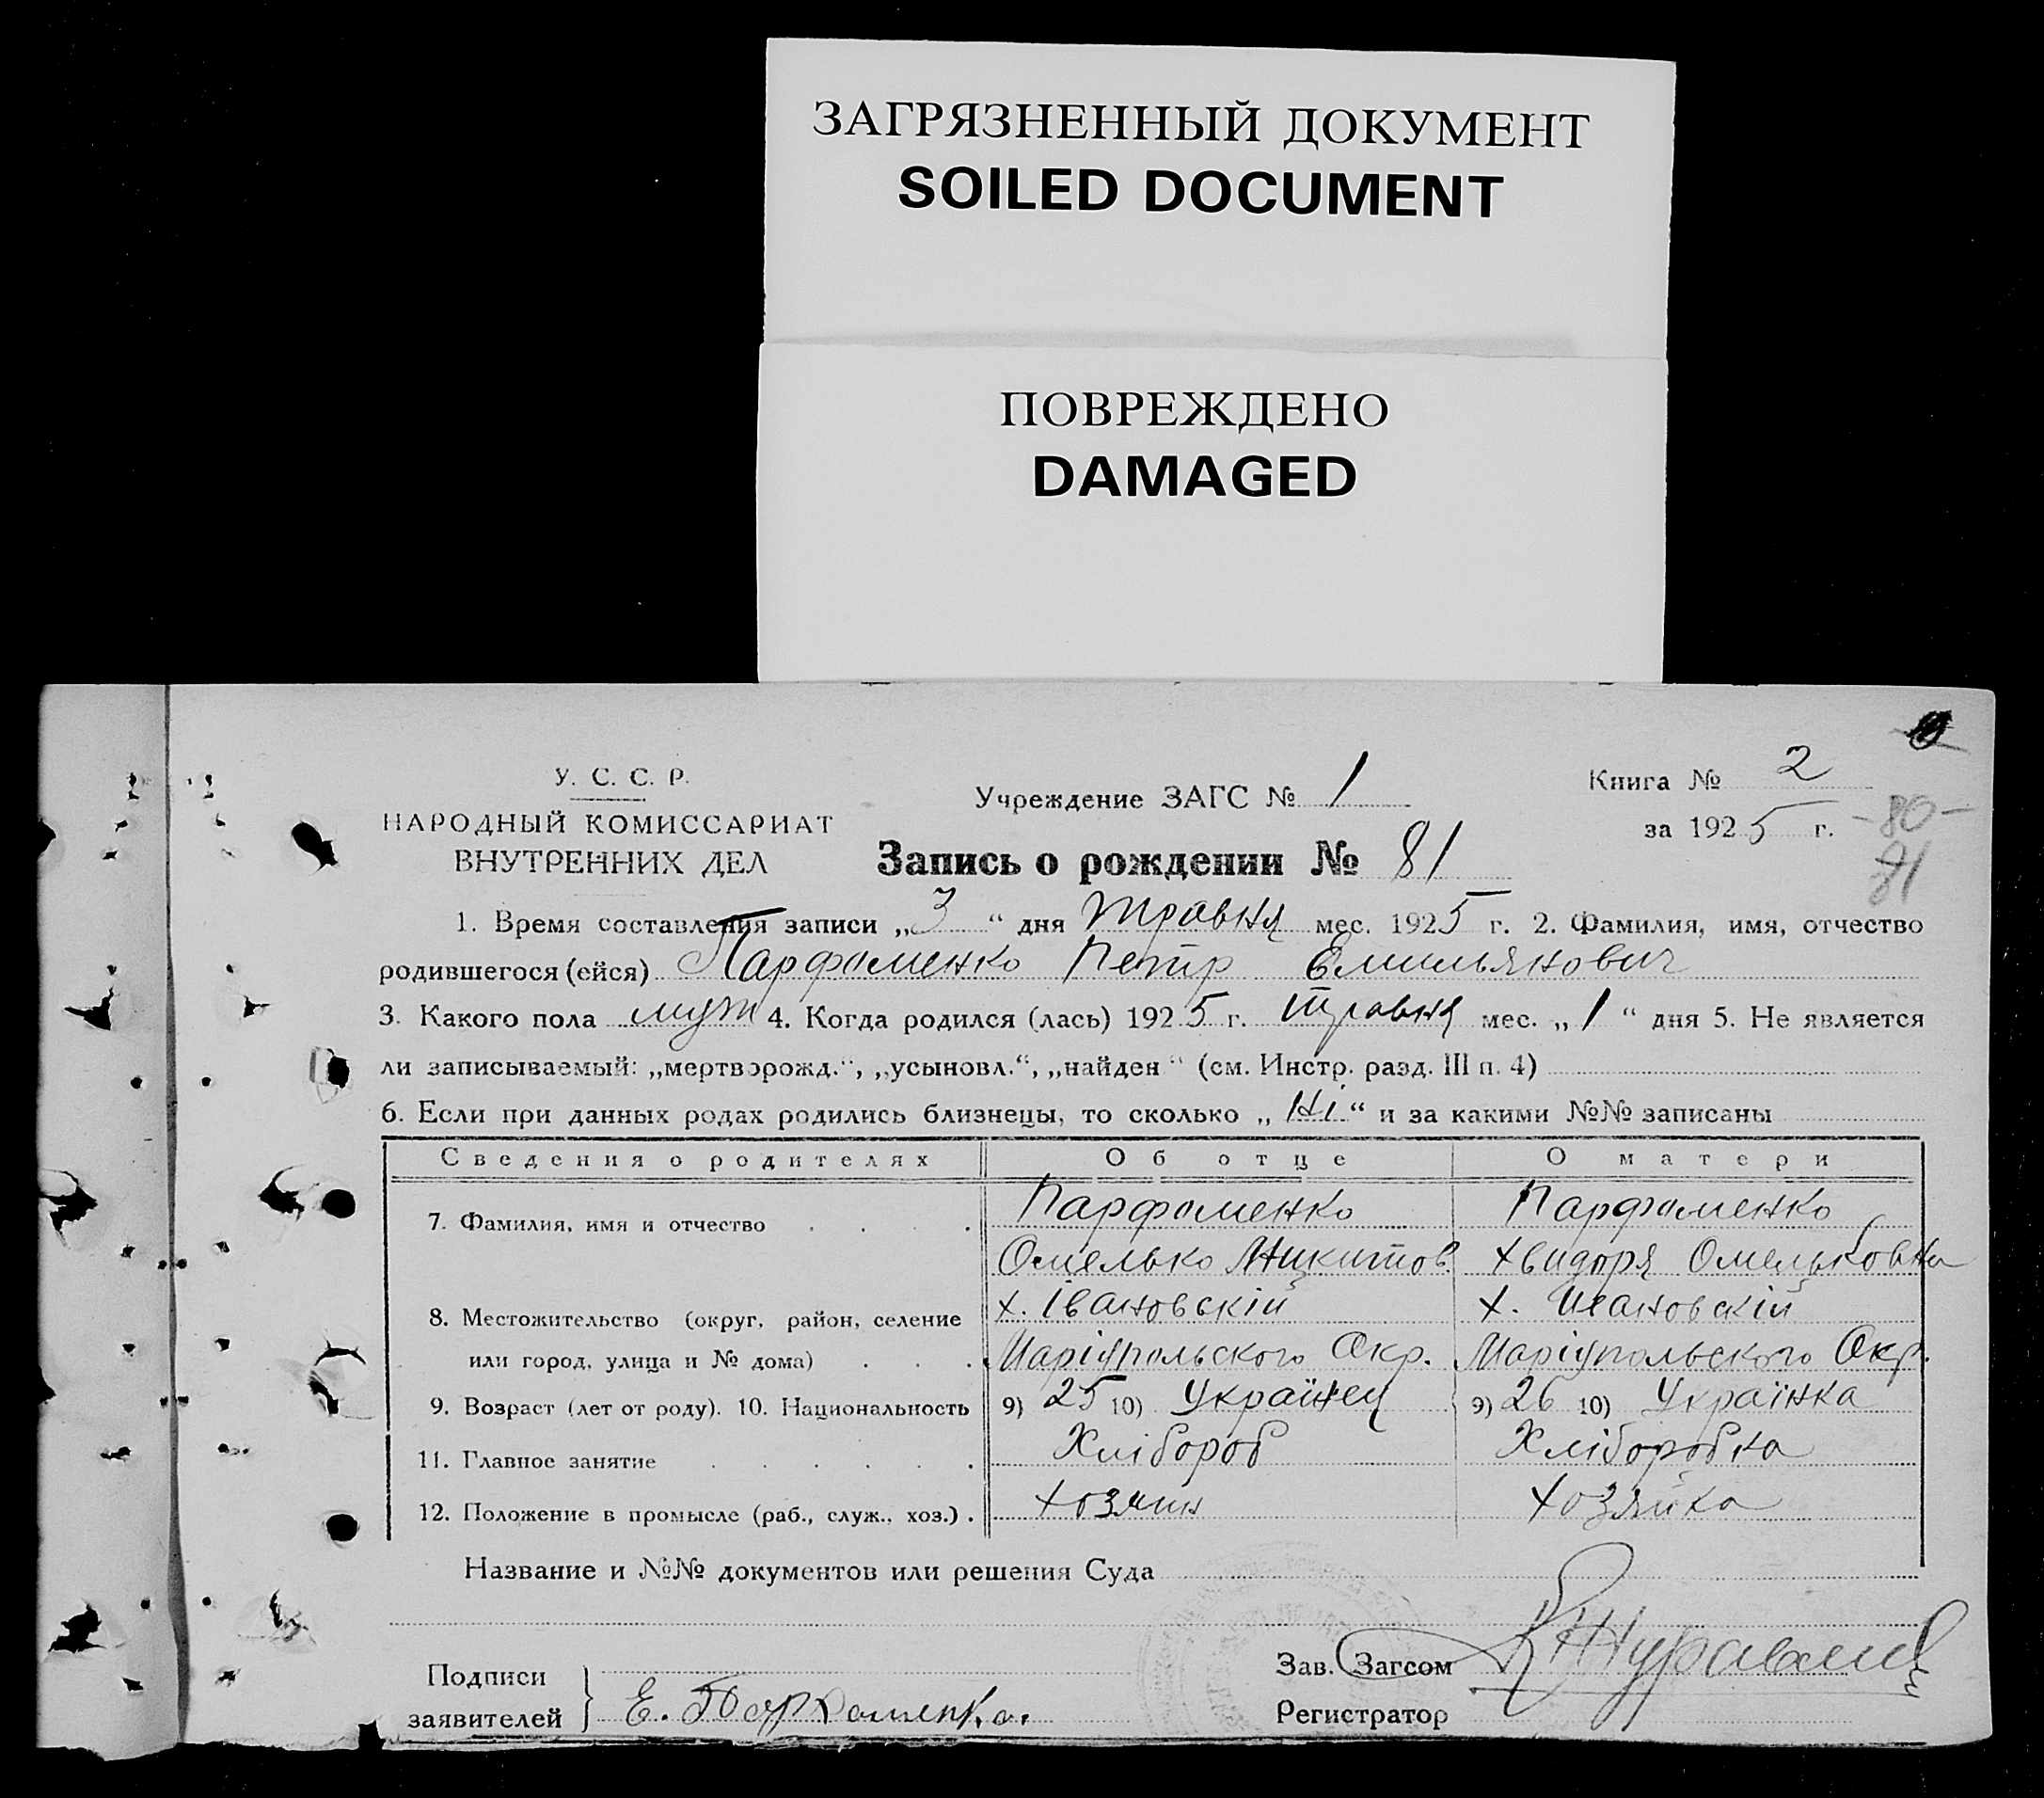 ЗАГРЯЗНЕННЫЙ ДОКУМЕНТ
SOILED DOCUMENT
ПОВРЕЖДЕНО
DAMAGED
У. С. С. Р.
НАРОДНЫЙ КОМИССАРИАТ
ВНУТРЕННИХ ДЕЛ
Учреждение ЗАГС № 1
Книга № 2
за 1925 г.
-80-
81
Запись о рождении № 81
1. Время составления записи „3“ дня Травня мес. 1925 г. 2. Фамилия, имя, отчество
родившегося (ейся) Парфоменко Петр Емильянович
3. Какого пола муж 4. Когда родился (лась) 1925 г. Травня мес. „1“ дня 5. Не является
ли записываемый: „мертворожд.“, „усыновл.“, „найден“ (см. Инстр. разд. III п. 4)
6. Если при данных родах родились близнецы, то сколько „Ні“ и за какими №№ записаны
Сведения о родителях Об отце О матери
7. Фамилия, имя и отчество Парфоменко Парфоменко
Омелько Микитов. Хвидоря Омельковна
8. Местожительство (округ, район, селение х. Івановскій х. Ивановскій
или город, улица и № дома) Маріупольского Окр. Маріупольского Окр.
9. Возраст (лет от роду). 10. Национальность 9) 25 10) Українец 9) 26 10) Українка
11. Главное занятие Хлібороб Хліборобка
12. Положение в промысле (раб., служ., хоз.) хозяин хозяйка
Название и №№ документов или решения Суда
Подписи
заявителей Е. Парфоменко.
Зав. Загсом
Регистратор